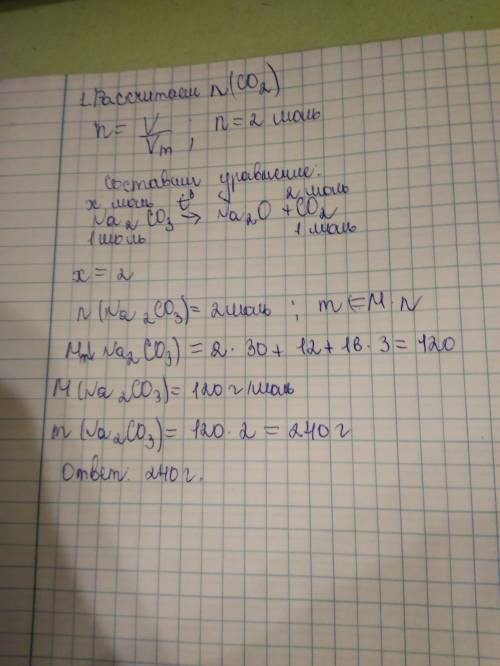 1. Рассчитаем n(CO₂)
n = V/Vm ; n = 2 моль
Составим уравнение:
x моль t° 2 моль
Na₂CO₃ → Na₂O + CO₂
1 моль 1 моль
x = 2
n(Na₂CO₃) = 2 моль ; m = M · n
M(Na₂CO₃) = 2 · 30 + 12 + 16 · 3 = 120
M(Na₂CO₃) = 120 г/моль
m(Na₂CO₃) = 120 · 2 = 240 г
Ответ. 240 г.